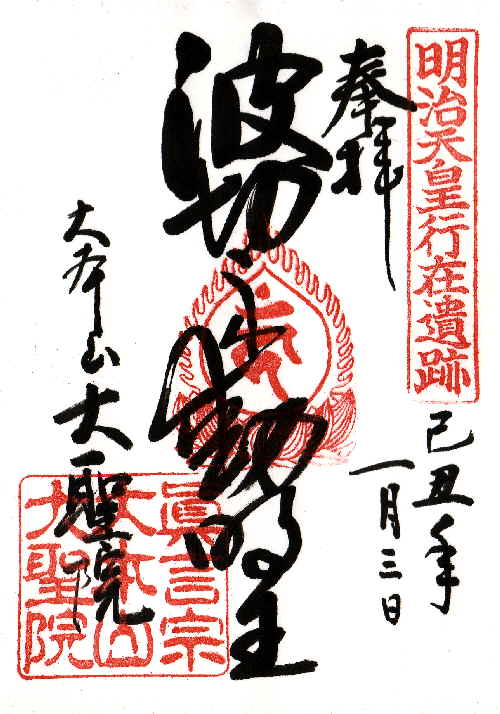 明治天皇行在遺跡
己丑年
一月三日
奉拝
波切不動明王
大本山大聖院
眞言宗
大本山
大聖院